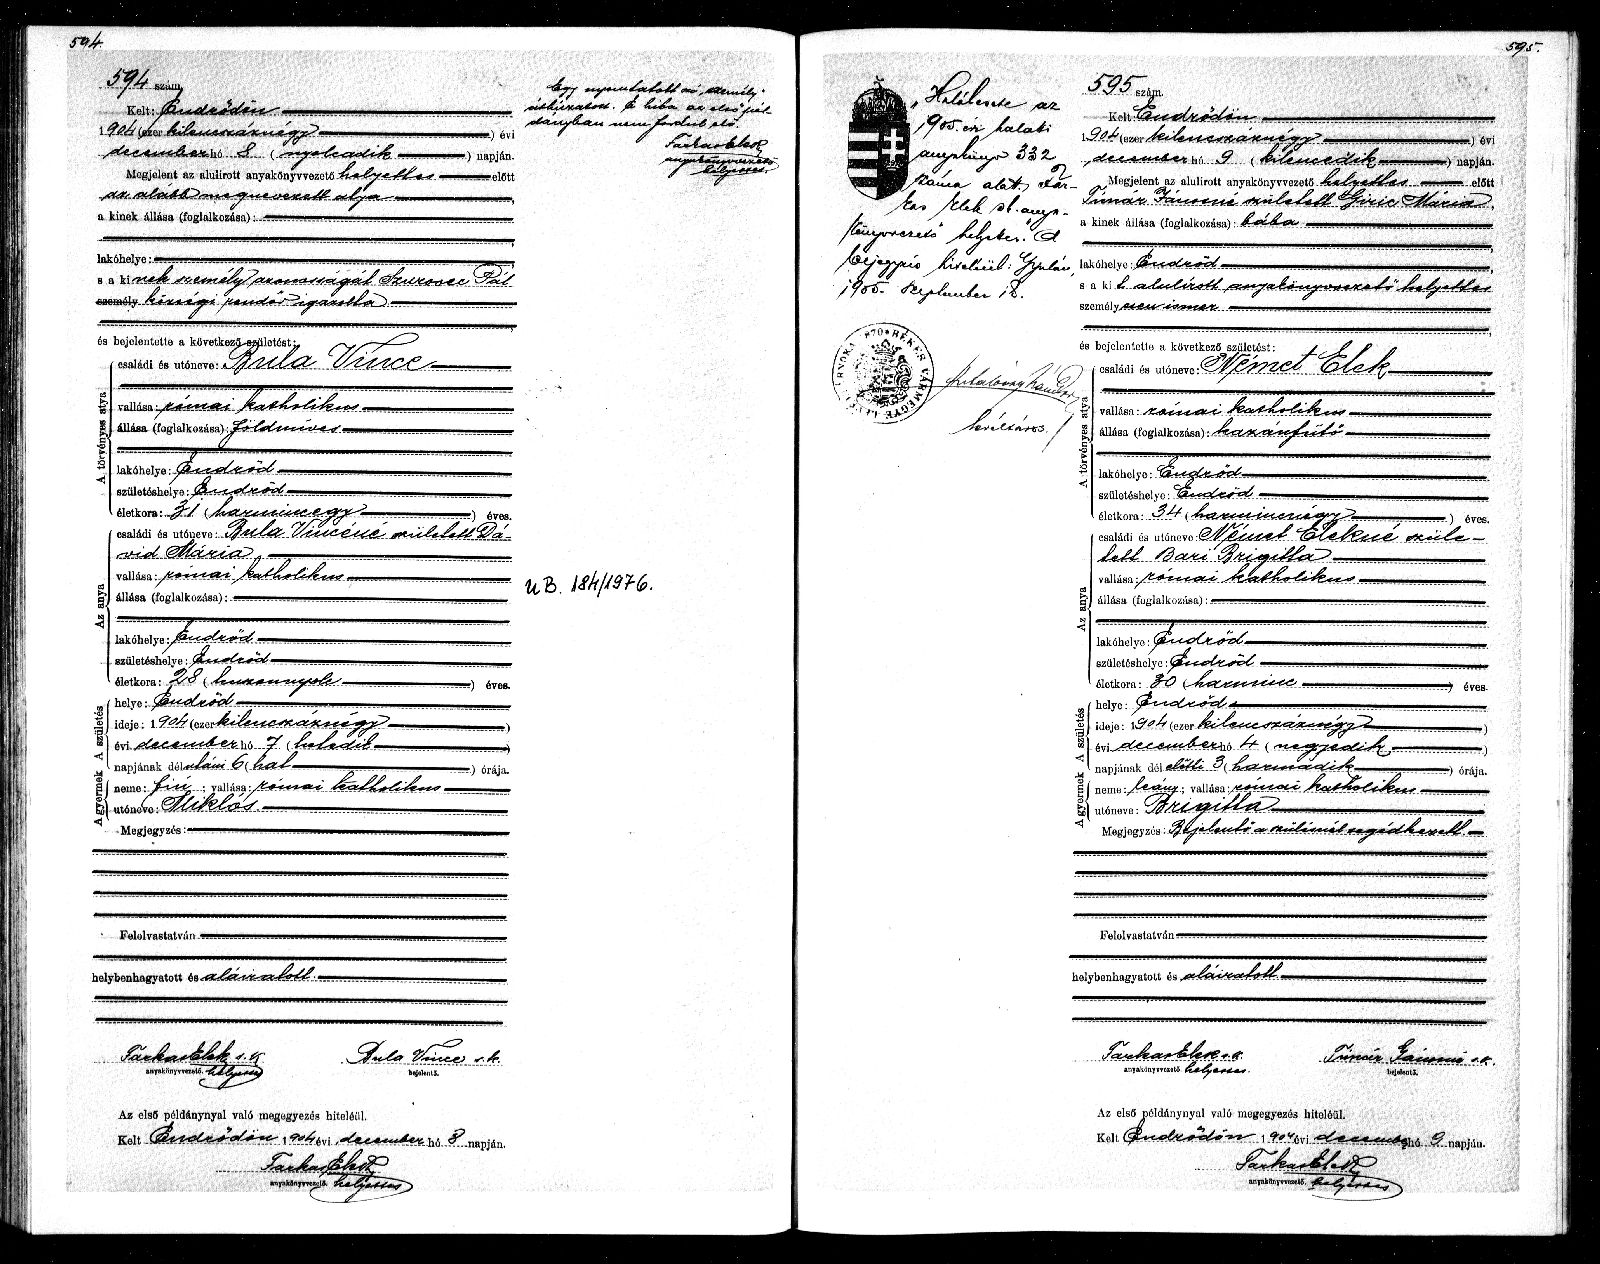 594.
594 szám
Kelt: Endrődön
1904 (ezer kilenczáznégy) évi
december hó 8 (nyolcadik) napján.
Megjelent az alulirott anyakönyvvezető helyettes előtt
az alább megnevezett atya,
a kinek állása (foglalkozása):
lakóhelye:
s a kinek személyazonosságát Szurovec Pál
személy községi rendőr igazolta
és bejelentette a következő születést:
A törvényes atya
családi és utóneve: Bula Vince
vallása: római katholikus
állása (foglalkozása): földmives
lakóhelye: Endrőd
születéshelye: Endrőd
életkora: 31 (harmincegy) éves.
Az anya
családi és utóneve: Bula Vincéné született Dá-
vid Mária
vallása: római katholikus
állása (foglalkozása):
lakóhelye: Endrőd
születéshelye: Endrőd
életkora: 28 (huszonnyolc) éves.
A születés
helye: Endrőd
ideje: 1904 (ezer kilenczáznégy)
évi december hó 7 (hetedik)
napjának délutáni 6 (hat) órája.
A gyermek
neme: fiú; vallása: római katholikus
utóneve: Miklós
Megjegyzés:
Felolvastatván
helybenhagyatott és aláiratott.
Farkas Elek s.k. Bula Vince s.k.
anyakönyvvezető. helyettes bejelentő.
Az első példánynyal való megegyezés hiteléül.
Kelt Endrődön 1904 évi december hó 8 napján.
Farkas Elek
anyakönyvvezető. helyettes
Egy nyomtatott szó „személy"
áthúzatott. E hiba az első pél-
dányban nem fordul elő.
Farkas Elek
anyakönyvvezető
helyettes.
U B. 184/1976.
595.
„Halálesete az
1905. évi halotti
anyakönyv 332
száma alatt. Far-
kas Elek st. anya-
könyvvezető helyettes." A
bejegyzés hiteléül: Gyulán,
1905. szeptember 18.
BÉKÉS VÁRMEGYE
levéltáros.
595 szám.
Kelt: Endrődön
1904 (ezer kilenczáznégy) évi
december hó 9 (kilencedik) napján.
Megjelent az alulirott anyakönyvvezető helyettes előtt
Timár Jánosné született Giric Mária,
a kinek állása (foglalkozása): bába
lakóhelye: Endrőd
s a kit alulirott anyakönyvvezető helyettes
személyesen ismer
és bejelentette a következő születést:
A törvényes atya
családi és utóneve: Német Elek
vallása: római katholikus
állása (foglalkozása): kazánfűtő
lakóhelye: Endrőd
születéshelye: Endrőd
életkora: 34 (harmincnégy) éves.
Az anya
családi és utóneve: Német Elekné szüle-
tett Bari Brigitta
vallása: római katholikus
állása (foglalkozása):
lakóhelye: Endrőd
születéshelye: Endrőd
életkora: 30 (harminc) éves.
A születés
helye: Endrőd
ideje: 1904 (ezer kilenczáznégy)
évi december hó 4 (negyedik)
napjának délelőtti 3 (harmadik) órája.
A gyermek
neme: leány; vallása: római katholikus
utóneve: Brigitta
Megjegyzés: Bejelentő a szülésnél segédkezett
Felolvastatván
helybenhagyatott és aláiratott
Farkas Elek s.k. Timár Jánosné s.k.
anyakönyvvezető. helyettes. bejelentő.
Az első példánynyal való megegyezés hiteléül.
Kelt Endrődön 1904 évi december hó 9 napján.
Farkas Elek
anyakönyvvezető. helyettes